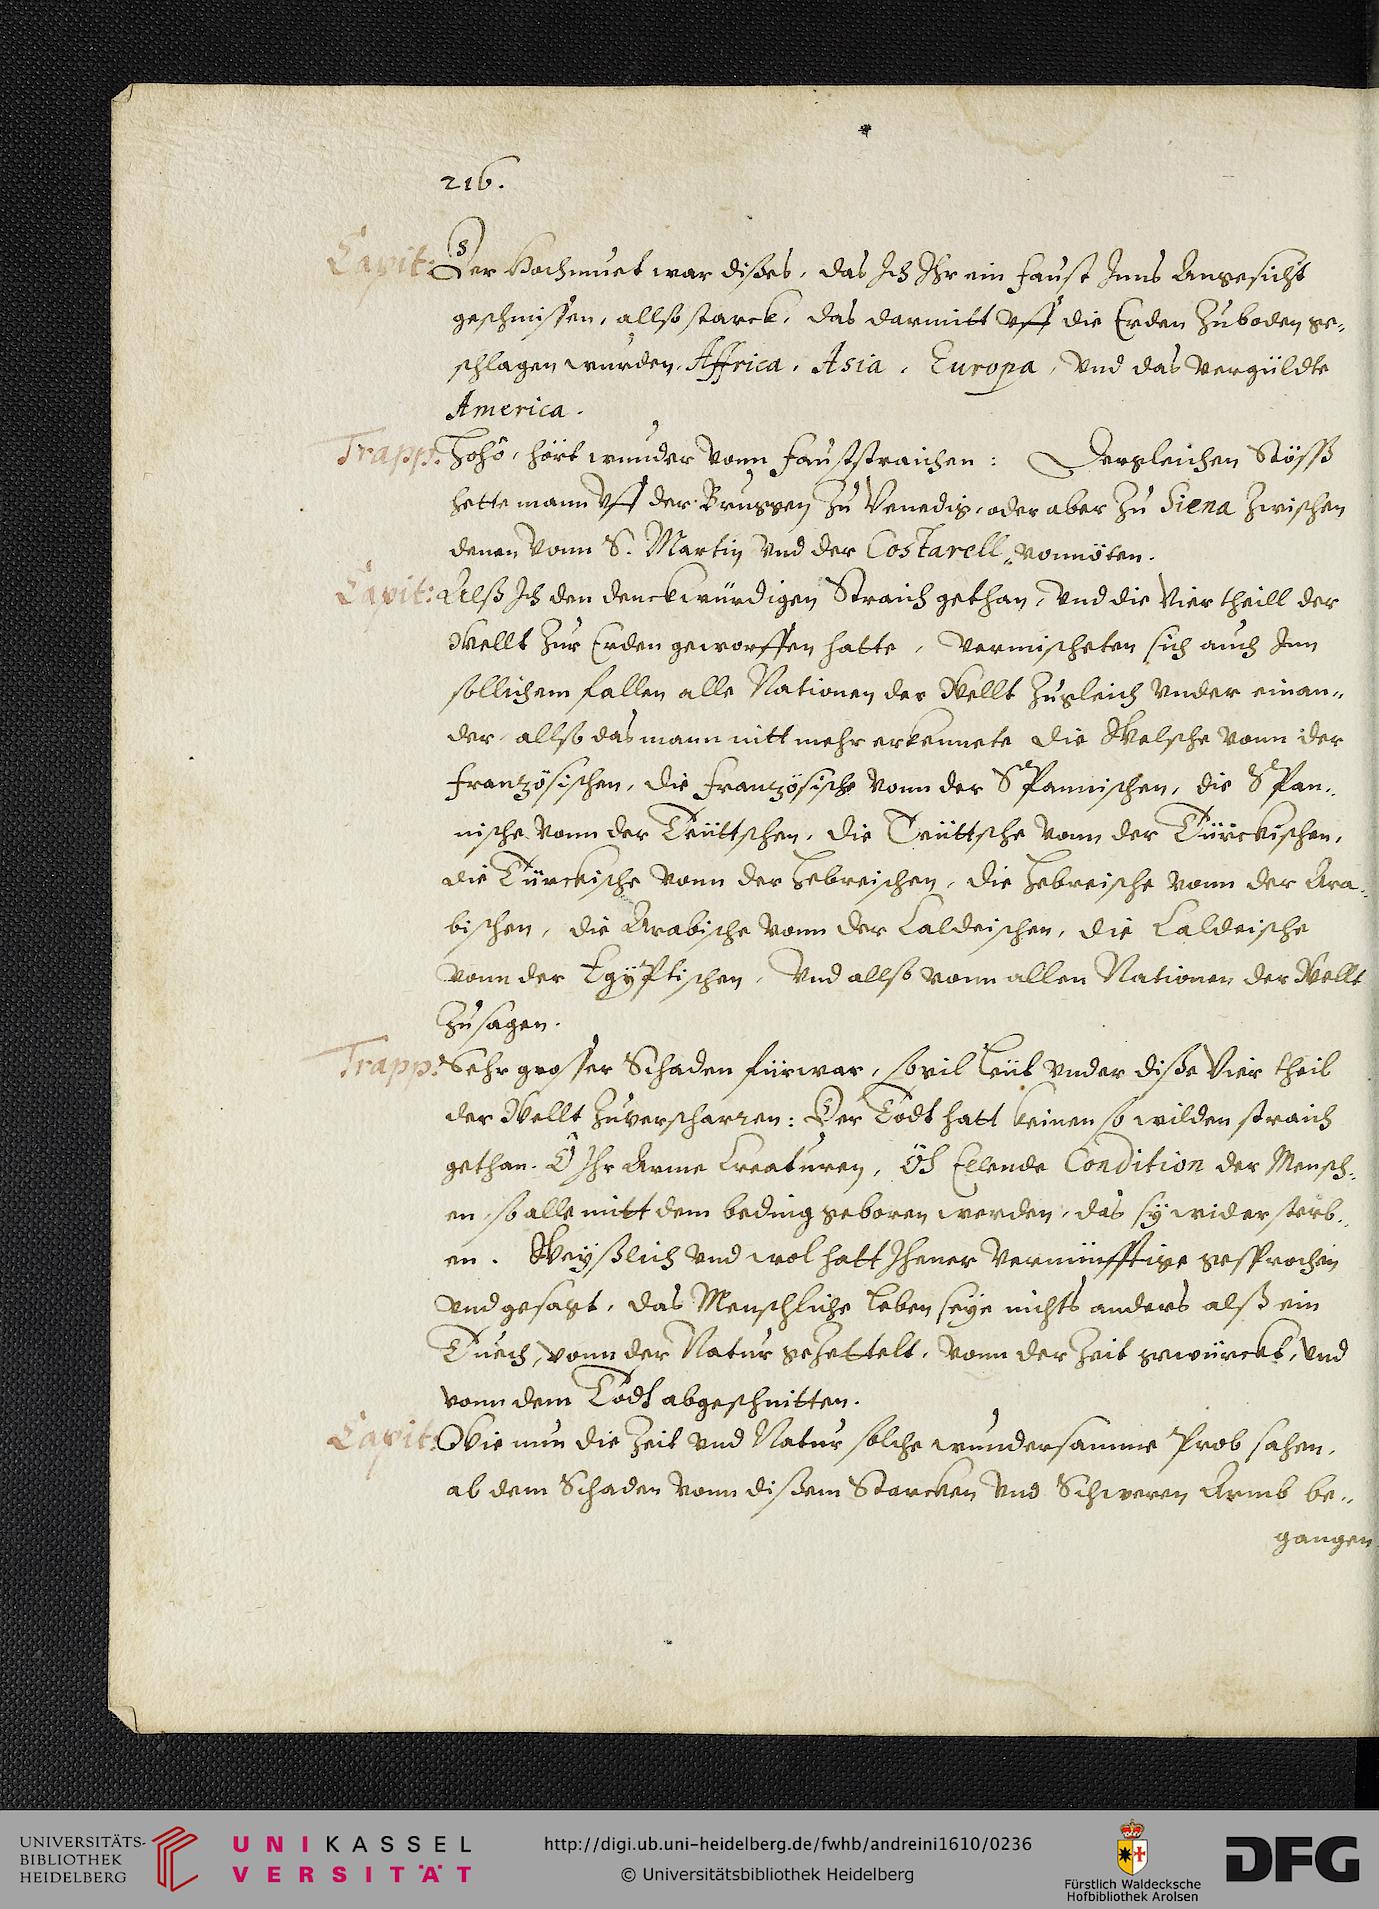 216.
Capit: Der Hochmuet war dißes, das Ich Ihr ein faust Inns Angesicht
geschmissen, allso starck, das darmitt vff die Erden Zuboden ge-
schlagen wurden, Affrica, Asia, Europa, vnd das vergüldte
America.
Trapp: Hoho, hört wunder vonn fauststraichen: Dergleichen Stösß
hette mann vff der Bruggen Zu Venedig, oder aber Zu Siena Zwischen
denen vonn S. Martin vnd der Costarell, vonnöten.
Capit: Alß Ich den denckwürdigen Straich gethan, vnd die Vier theill der
Wellt Zur Erden geworffen hatte, vermischeten sich auch Inn
sollichem fallen alle Nationen der Wellt Zugleich vnder einan-
der, allso das mann nitt mehr erkennete die Welsche vonn der
französischen, die französische vonn der Spannischen, die Span-
nische vonn der Teüttschen, die Teüttsche vonn der Türckischen,
die Türckische vonn der Hebreischen, die Hebreische vonn der Ara-
bischen, die Arabische vonn der Caldeischen, die Caldeische
vonn der Egÿptischen, vnd allso vonn allen Nationen der Wellt
Zusagen.
Trapp: Sehr grosser Schaden fürwar, sovil leüt vnder diße Vier theil
der Wellt Zuverscharren: Der Todt hatt keinen so wilden straich
gethan. O Ihr Arme Creaturen, Oh Ellende Condition der Mensch-
en, so alle mitt dem beding geboren werden, das sy wider sterb-
en. Weyßlich vnd wol hatt Ihener vernünfftige gesprochen
vnd gesagt, das Menschliche leben seye nichts anders alß ein
Tuech, vonn der Natur gezettelt, vonn der Zeit gewürckt, vnd
vonn dem Todt abgeschnitten.
Capit: Wie nun die Zeit vnd Natur solche wundersamme Prob sahen,
ab dem Schaden vonn dißem Starcken vnd Schweren Armb be-
gangen
UNIVERSITÄTS-
BIBLIOTHEK
HEIDELBERG
UNIKASSEL
VERSITÄT
http://digi.ub.uni-heidelberg.de/fwhb/andreini1610/0236
© Universitätsbibliothek Heidelberg
Fürstlich Waldecksche
Hofbibliothek Arolsen
DFG